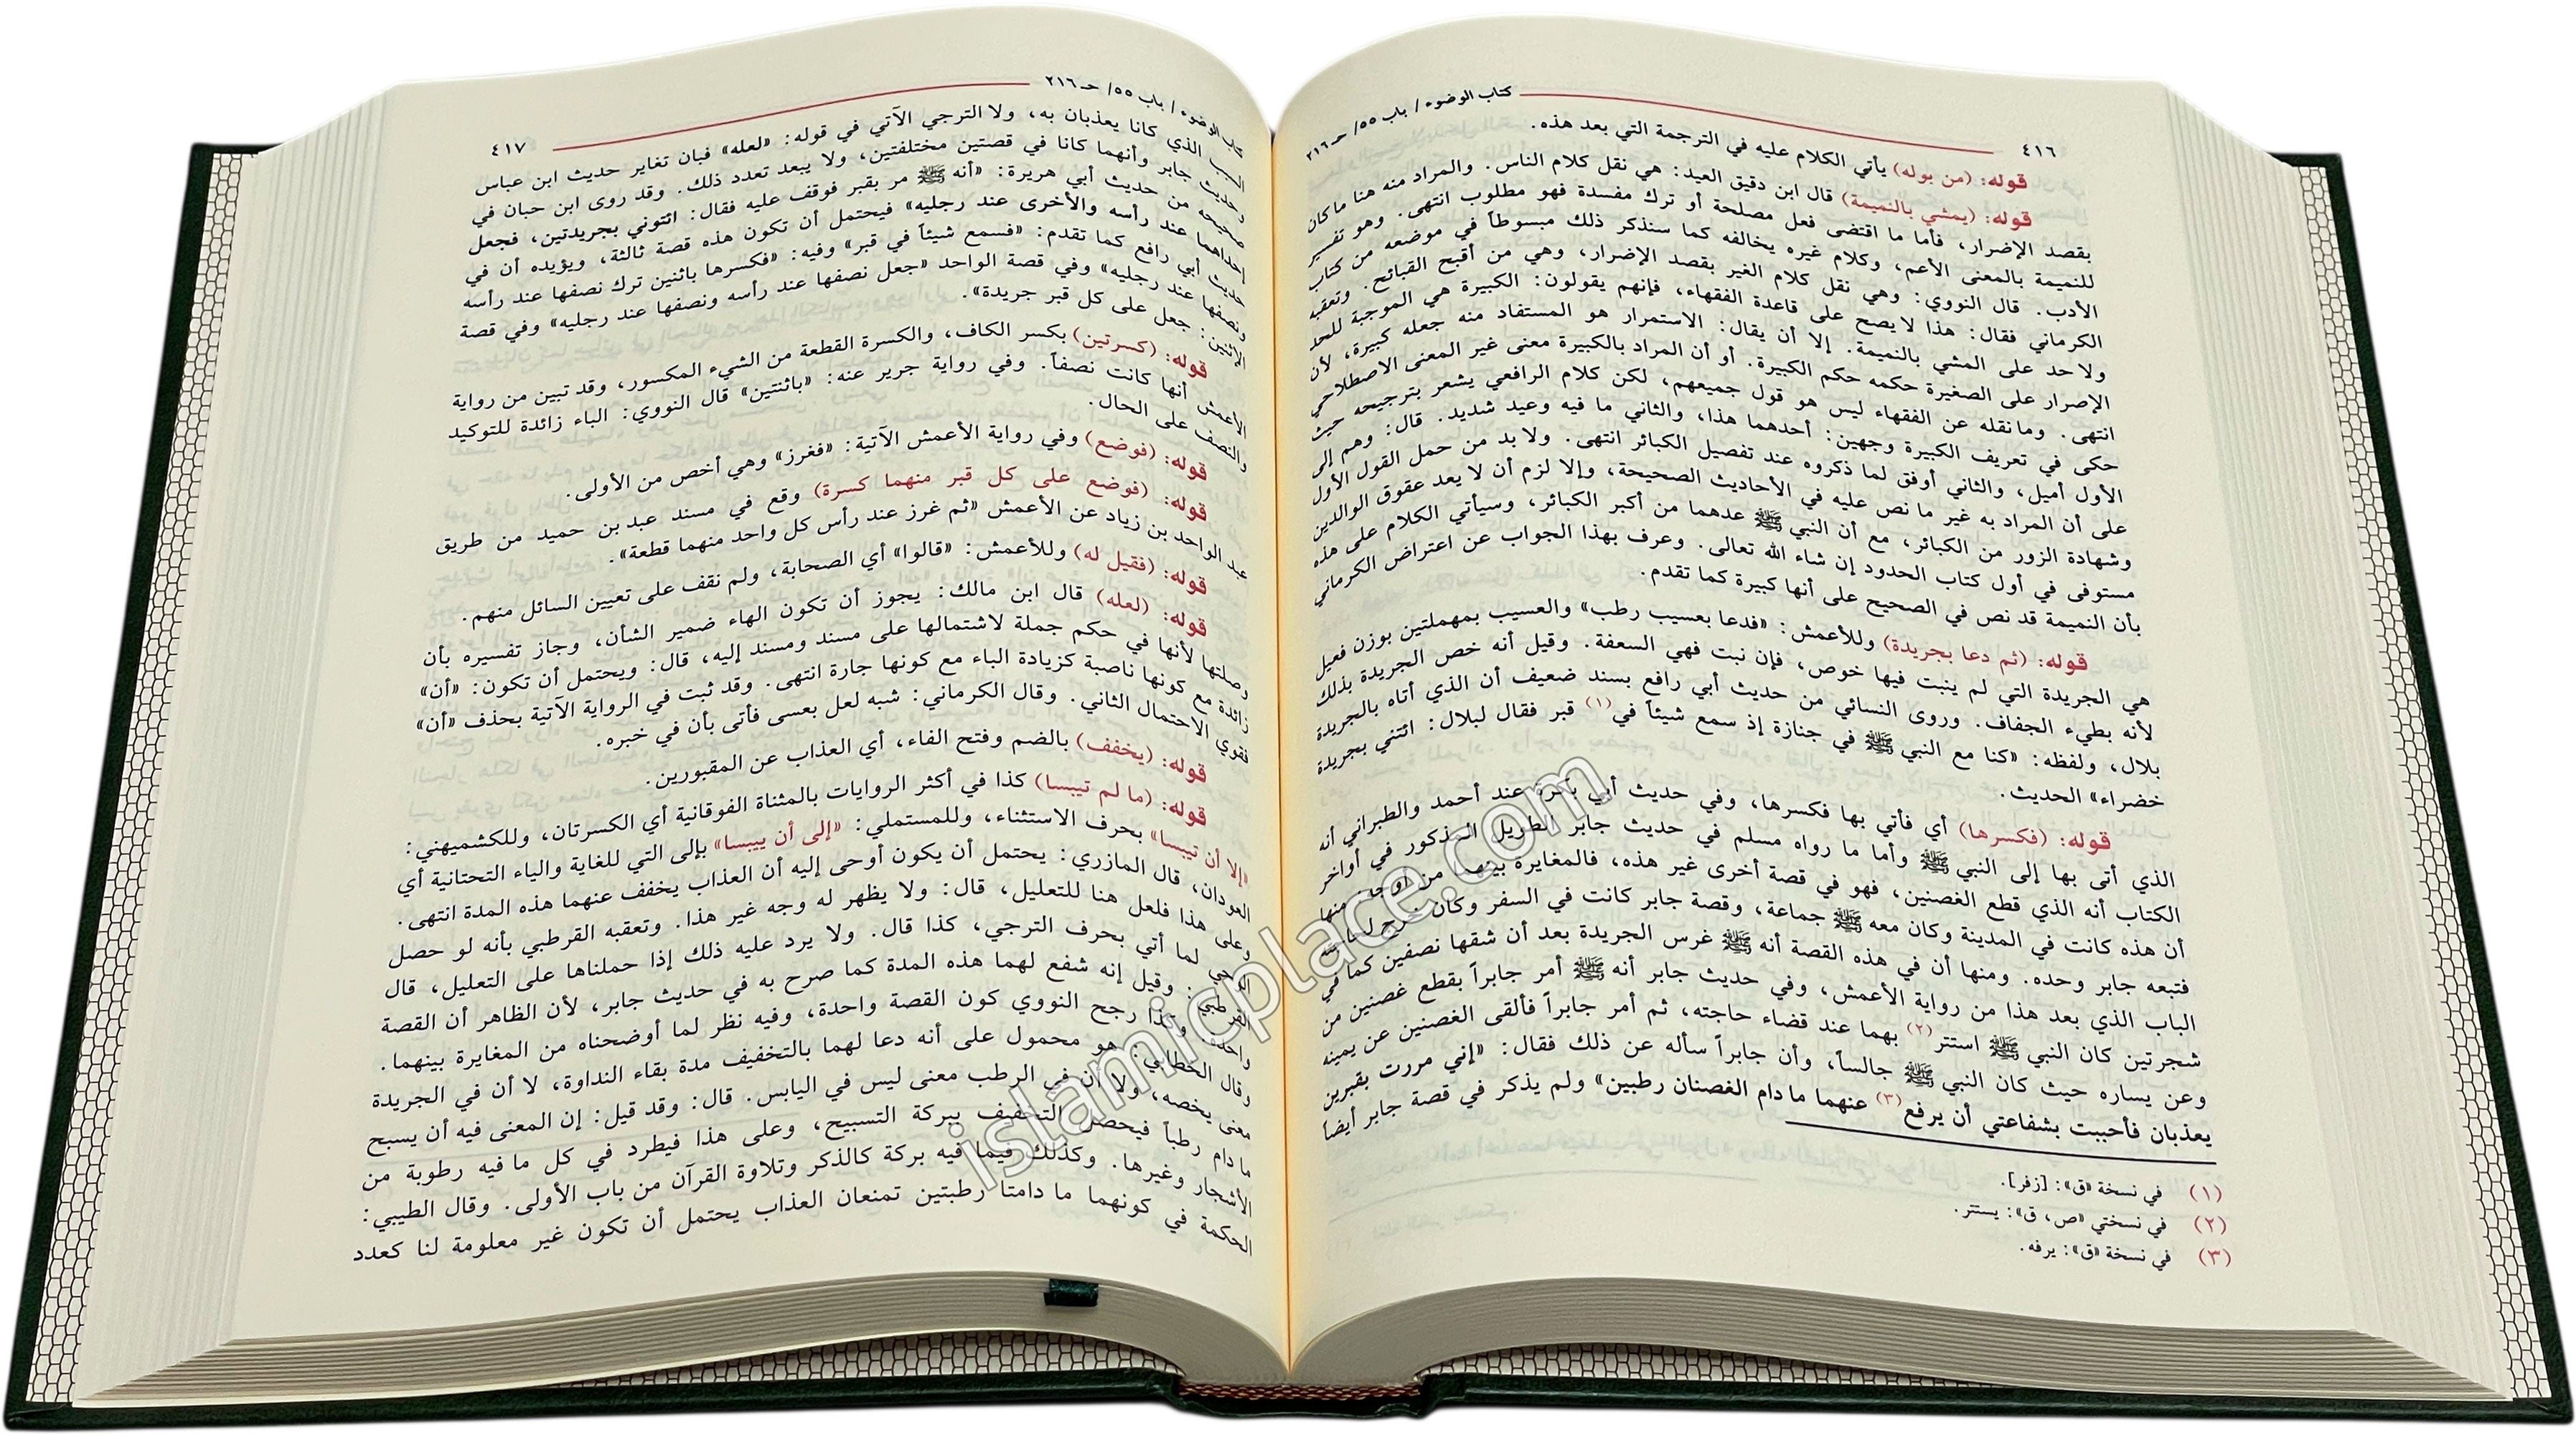 ٤١٦
كتاب الوضوء / باب ٥٥/ حـ ٢١٦
قوله: (من بوله) يأتي الكلام عليه في الترجمة التي بعد هذه.
قوله: (يمشي بالنميمة) قال ابن دقيق العيد: هي نقل كلام الناس. والمراد منه هنا ما كان
بقصد الإضرار، فأما ما اقتضى فعل مصلحة أو ترك مفسدة فهو مطلوب انتهى. وهو تفسير
للنميمة بالمعنى الأعم، وكلام غيره يخالفه كما سنذكر ذلك مبسوطاً في موضعه من كتاب
الأدب. قال النووي: وهي نقل كلام الغير بقصد الإضرار، وهي من أقبح القبائح. وتعقبه
الكرماني فقال: هذا لا يصح على قاعدة الفقهاء، فإنهم يقولون: الكبيرة هي الموجبة للحد
ولا حد على المشي بالنميمة. إلا أن يقال: الاستمرار هو المستفاد منه جعله كبيرة، لأن
الإصرار على الصغيرة حكمه حكم الكبيرة. أو أن المراد بالكبيرة معنى غير المعنى الاصطلاحي
انتهى. وما نقله عن الفقهاء ليس هو قول جميعهم، لكن كلام الرافعي يشعر بترجيحه حيث
حكى في تعريف الكبيرة وجهين: أحدهما هذا، والثاني ما فيه وعيد شديد. قال: وهم إلى
الأول أميل، والثاني أوفق لما ذكروه عند تفصيل الكبائر انتهى. ولا بد من حمل القول الأول
على أن المراد به غير ما نص عليه في الأحاديث الصحيحة، وإلا لزم أن لا يعد عقوق الوالدين
وشهادة الزور من الكبائر، مع أن النبي ﷺ عدهما من أكبر الكبائر، وسيأتي الكلام على هذه
مستوفى في أول كتاب الحدود إن شاء الله تعالى. وعرف بهذا الجواب عن اعتراض الكرماني
بأن النميمة قد نص في الصحيح على أنها كبيرة كما تقدم.
قوله: (ثم دعا بجريدة) وللأعمش: «فدعا بعسيب رطب» والعسيب بمهملتين بوزن فعيل
هي الجريدة التي لم ينبت فيها خوص، فإن نبت فهي السعفة. وقيل أنه خص الجريدة بذلك
لأنه بطيء الجفاف. وروى النسائي من حديث أبي رافع بسند ضعيف أن الذي أتاه بالجريدة
بلال، ولفظه: «كنا مع النبي ﷺ في جنازة إذ سمع شيئاً في(١) قبر فقال لبلال: ائتني بجريدة
خضراء» الحديث.
قوله: (فكسرها) أي فأتي بها فكسرها، وفي حديث أبي بكرة عند أحمد والطبراني أنه
الذي أتى بها إلى النبي ﷺ وأما ما رواه مسلم في حديث جابر الطويل المذكور في أواخر
الكتاب أنه الذي قطع الغصنين، فهو في قصة أخرى غير هذه، فالمغايرة بينهما من أوجه منها
أن هذه كانت في المدينة وكان معه ﷺ جماعة، وقصة جابر كانت في السفر وكان خرج لحاجته
فتبعه جابر وحده. ومنها أن في هذه القصة أنه ﷺ غرس الجريدة بعد أن شقها نصفين كما في
الباب الذي بعد هذا من رواية الأعمش، وفي حديث جابر أنه ﷺ أمر جابراً بقطع غصنين من
شجرتين كان النبي ﷺ استتر(٢) بهما عند قضاء حاجته، ثم أمر جابراً فألقى الغصنين عن يمينه
وعن يساره حيث كان النبي ﷺ جالساً، وأن جابراً سأله عن ذلك فقال: «إني مررت بقبرين
يعذبان فأحببت بشفاعتي أن يرفع(٣) عنهما ما دام الغصنان رطبين» ولم يذكر في قصة جابر أيضاً
(١) في نسخة «ق»: [زفر].
(٢) في نسختي «ص، ق»: يستتر.
(٣) في نسخة «ق»: يرفه.
كتاب الوضوء / باب ٥٥/ حـ ٢١٦
٤١٧
السبب الذي كانا يعذبان به، ولا الترجي الآتي في قوله: «لعله» فبان تغاير حديث ابن عباس
وحديث جابر وأنهما كانا في قصتين مختلفتين، ولا يبعد تعدد ذلك. وقد روى ابن حبان في
صحيحه من حديث أبي هريرة: «أنه ﷺ مر بقبر فوقف عليه فقال: ائتوني بجريدتين، فجعل
إحداهما عند رأسه والأخرى عند رجليه» فيحتمل أن تكون هذه قصة ثالثة، ويؤيده أن في
حديث أبي رافع كما تقدم: «فسمع شيئاً في قبر» وفيه: «فكسرها باثنين ترك نصفها عند رأسه
ونصفها عند رجليه» وفي قصة الواحد «جعل نصفها عند رأسه ونصفها عند رجليه» وفي قصة
الإثنين: جعل على كل قبر جريدة».
قوله: (كسرتين) بكسر الكاف، والكسرة القطعة من الشيء المكسور، وقد تبين من رواية
الأعمش أنها كانت نصفاً. وفي رواية جرير عنه: «باثنتين» قال النووي: الباء زائدة للتوكيد
والنصف على الحال.
قوله: (فوضع) وفي رواية الأعمش الآتية: «فغرز» وهي أخص من الأولى.
قوله: (فوضع على كل قبر منهما كسرة) وقع في مسند عبد بن حميد من طريق
عبد الواحد بن زياد عن الأعمش «ثم غرز عند رأس كل واحد منهما قطعة».
قوله: (فقيل له) وللأعمش: «قالوا» أي الصحابة، ولم نقف على تعيين السائل منهم.
قوله: (لعله) قال ابن مالك: يجوز أن تكون الهاء ضمير الشأن، وجاز تفسيره بأن
وصلتها لأنها في حكم جملة لاشتمالها على مسند ومسند إليه، قال: ويحتمل أن تكون: «أن»
زائدة مع كونها ناصبة كزيادة الباء مع كونها جارة انتهى. وقد ثبت في الرواية الآتية بحذف «أن»
نقوي الاحتمال الثاني. وقال الكرماني: شبه لعل بعسى فأتى بأن في خبره.
قوله: (يخفف) بالضم وفتح الفاء، أي العذاب عن المقبورين.
قوله: (ما لم تيبسا) كذا في أكثر الروايات بالمثناة الفوقانية أي الكسرتان، وللكشميهني:
«إلا أن تيبسا» بحرف الاستثناء، وللمستملي: «إلى أن ييبسا» بإلى التي للغاية والياء التحتانية أي
العودان، قال المازري: يحتمل أن يكون أوحى إليه أن العذاب يخفف عنهما هذه المدة انتهى.
وعلى هذا فلعل هنا للتعليل، قال: ولا يظهر له وجه غير هذا. وتعقبه القرطبي بأنه لو حصل
الوحي لما أتي بحرف الترجي، كذا قال. ولا يرد عليه ذلك إذا حملناها على التعليل، قال
القرطبي: وقيل إنه شفع لهما هذه المدة كما صرح به في حديث جابر، لأن الظاهر أن القصة
واحدة. وكذا رجح النووي كون القصة واحدة، وفيه نظر لما أوضحناه من المغايرة بينهما.
وقال الخطابي: هو محمول على أنه دعا لهما بالتخفيف مدة بقاء النداوة، لا أن في الجريدة
معنى يخصه، ولا أن في الرطب معنى ليس في اليابس. قال: وقد قيل: إن المعنى فيه أن يسبح
ما دام رطباً فيحصل التخفيف ببركة التسبيح، وعلى هذا فيطرد في كل ما فيه رطوبة من
الأشجار وغيرها. وكذلك فيما فيه بركة كالذكر وتلاوة القرآن من باب الأولى. وقال الطيبي:
الحكمة في كونهما ما دامتا رطبتين تمنعان العذاب يحتمل أن تكون غير معلومة لنا كعدد
islamicplace.com